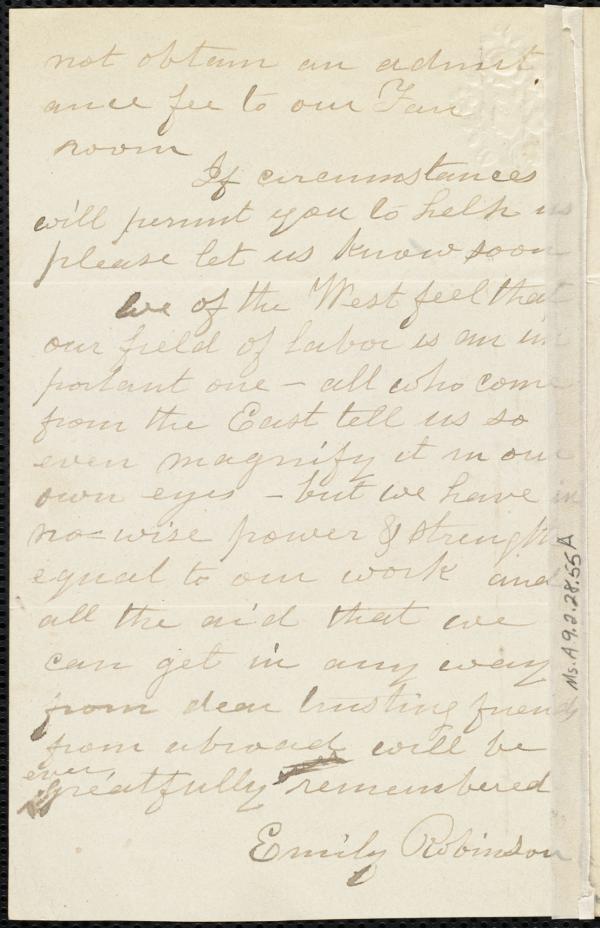 not obtain an admit
ance fee to our Fair
room
If circumstances
will permit you to help us
please let us know soon
We of the West feel that
our field of labor is an im
portant one – all who come
from the East tell us so
even magnify it in our
own eyes – but we have in
no-wise power & strength
equal to our work and
all the aid that we
can get in any way
from dear trusting friends
from abroad will be
ever
greatfully remembered
Emily Robinson
Ms. A 9.2.28.55A